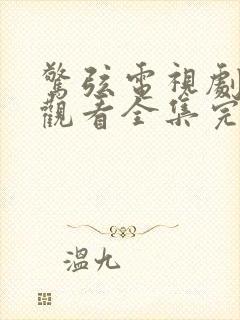 驚弦電視劇
觀看全集完
溫九